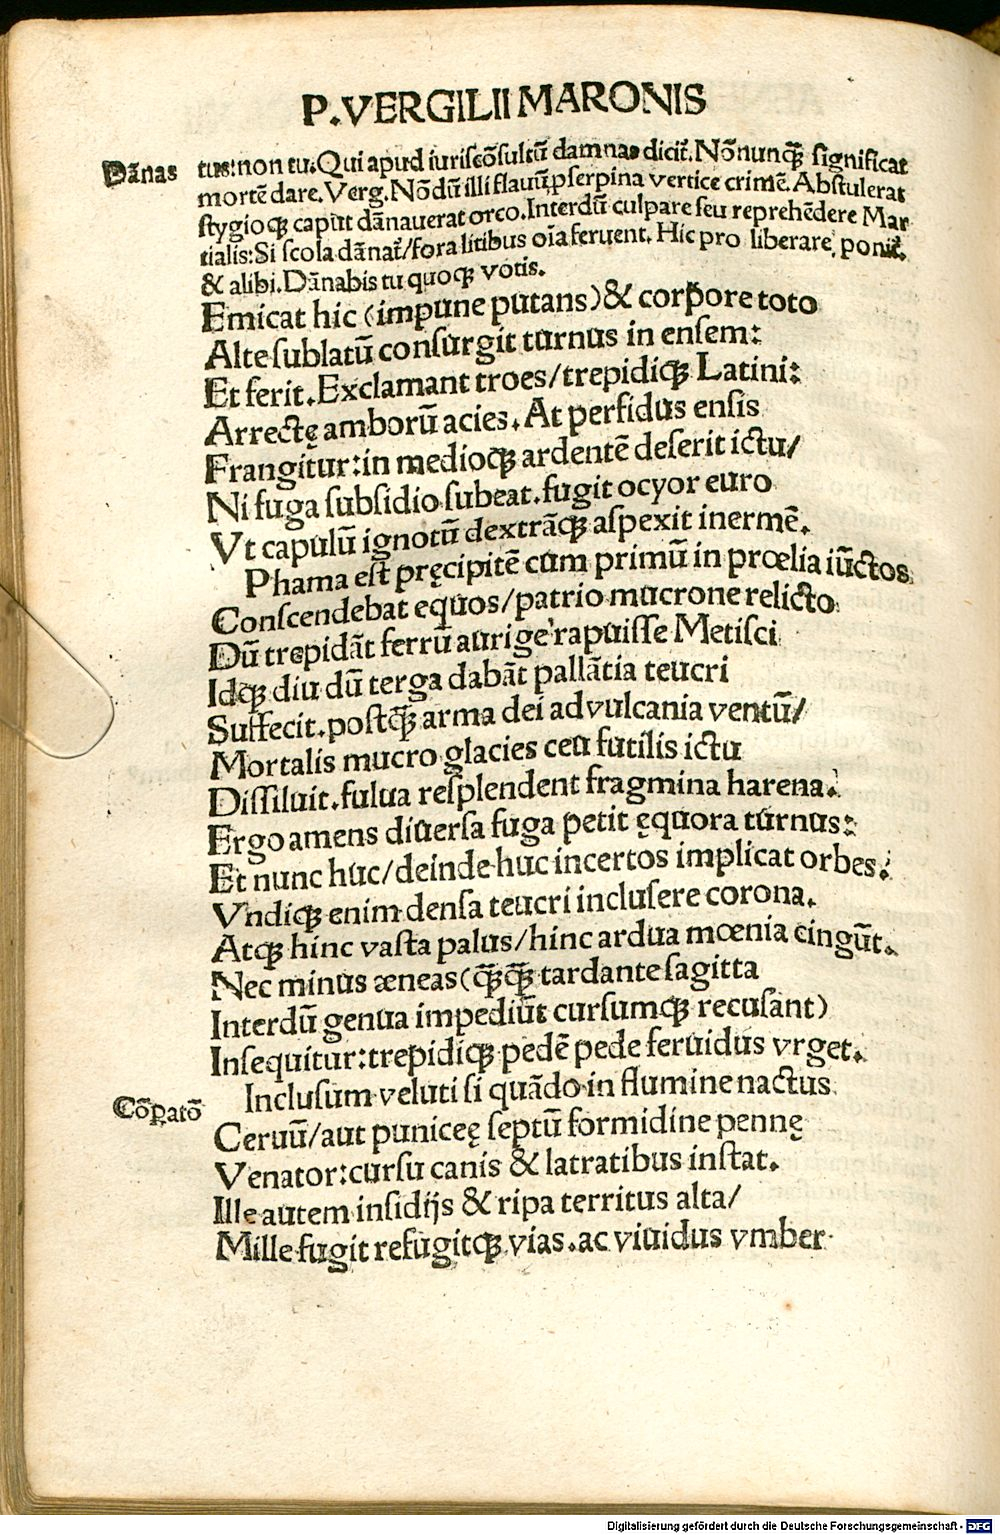 P.VERGILII MARONIS
Dānas
tus:non tu.Qui apud iuriscōsultū damnas dicit̄.Nōnunq̄ꝫ significat
mortē dare.Verg.Nōdū illi flauū ꝓserpina vertice crimē.Abstulerat
stygioqꝫ caput dānauerat orco.Interdū culpare seu reprehēdere Mar
tialis:Si scola dānat̄/fora litibus oīa feruent.Hic pro liberare ponit̄.
& alibi.Dānabis tu quoqꝫ votis.
Emicat hic (impune putans)& corpore toto
Alte sublatū consurgit turnus in ensem:
Et ferit.Exclamant troes/trepidiqꝫ Latini:
Arrectę amborū acies.At perfidus ensis
Frangitur:in medioqꝫ ardentē deserit ictu/
Ni fuga subsidio subeat.fugit ocyor euro
Vt capulū ignotū dextrāqꝫ aspexit inermē.
Phama est pręcipitē cum primū in prœlia iūctos
Conscendebat equos/patrio mucrone relicto
Dū trepidāt ferrū aurige rapuisse Metisci
Idqꝫ diu dū terga dabāt pallātia teucri
Suffecit.postq̄ꝫ arma dei ad vulcania ventū/
Mortalis mucro glacies ceu futilis ictu
Dissiluit.fulua resplendent fragmina harena.
Ergo amens diuersa fuga petit ęquora turnus:
Et nunc huc/deinde huc incertos implicat orbes.
Vndiqꝫ enim densa teucri inclusere corona.
Atqꝫ hinc vasta palus/hinc ardua mœnia cingūt.
Nec minus æneas (q̄ꝫq̄ꝫ tardante sagitta
Interdū genua impediūt cursumqꝫ recusant)
Insequitur:trepidiqꝫ pedē pede feruidus vrget.
Cōꝑatō
Inclusum veluti si quādo in flumine nactus
Ceruū/aut puniceę septū formidine pennę
Venator:cursu canis & latratibus instat.
Ille autem insidijs & ripa territus alta/
Mille fugit refugitqꝫ vias.ac viuidus vmber
Digitalisierung gefördert durch die Deutsche Forschungsgemeinschaft - DFG